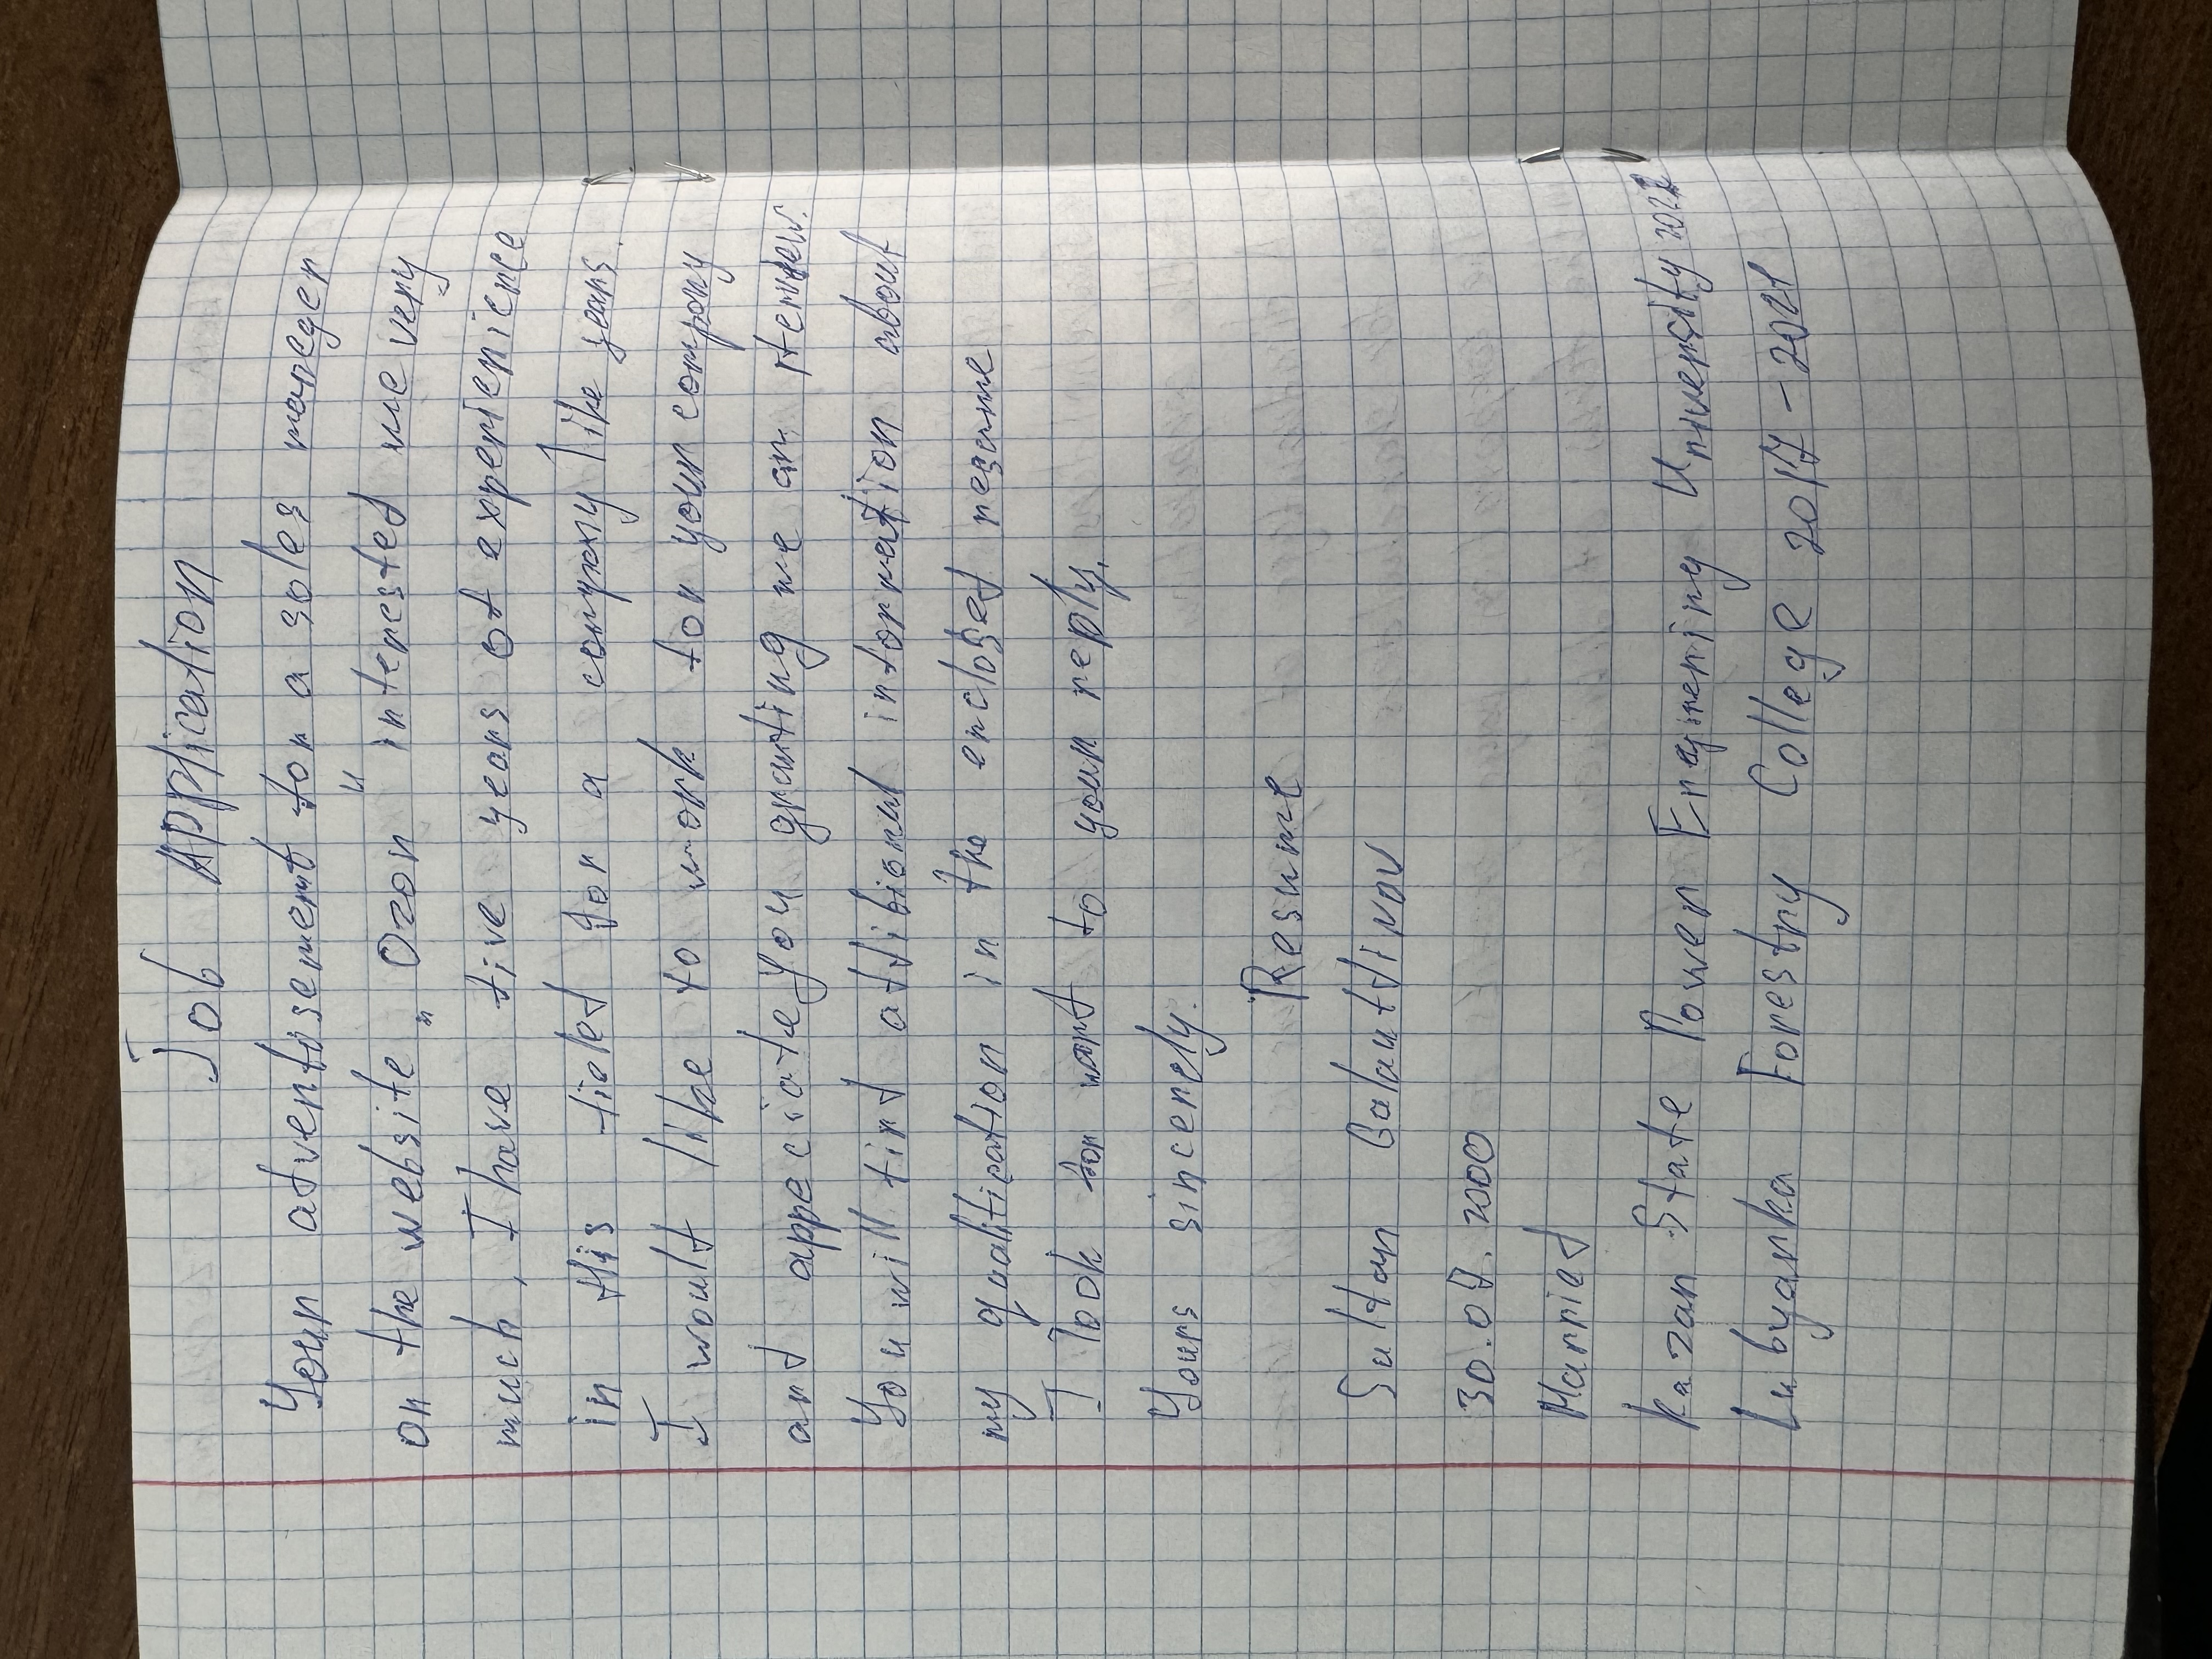 Job Application
Your adventisement for a sales maneger
on the website „Ozon" interested me very
much, I have five years of experienience
in this fieled for a company like years.
I would like to work for your company
and appeciate you granting me an itenview.
You will find addibional information about
my qualification in the enclosed resume
I look for ward to your reply.
Yours sincerely.
Resume
Sultan Galautdinov
30.07.2000
Married
Kazan State Power Enginening University 2022
Lubyanka Forestry College 2017-2021